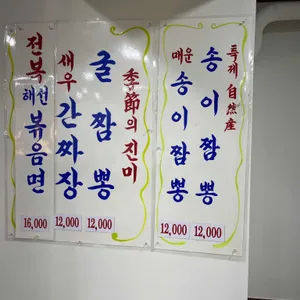 季節의 진미
굴짬뽕
12,000
새우간짜장
12,000
전복해선볶음면
16,000
특제 自然産
송이짬뽕
12,000
매운송이짬뽕
12,000